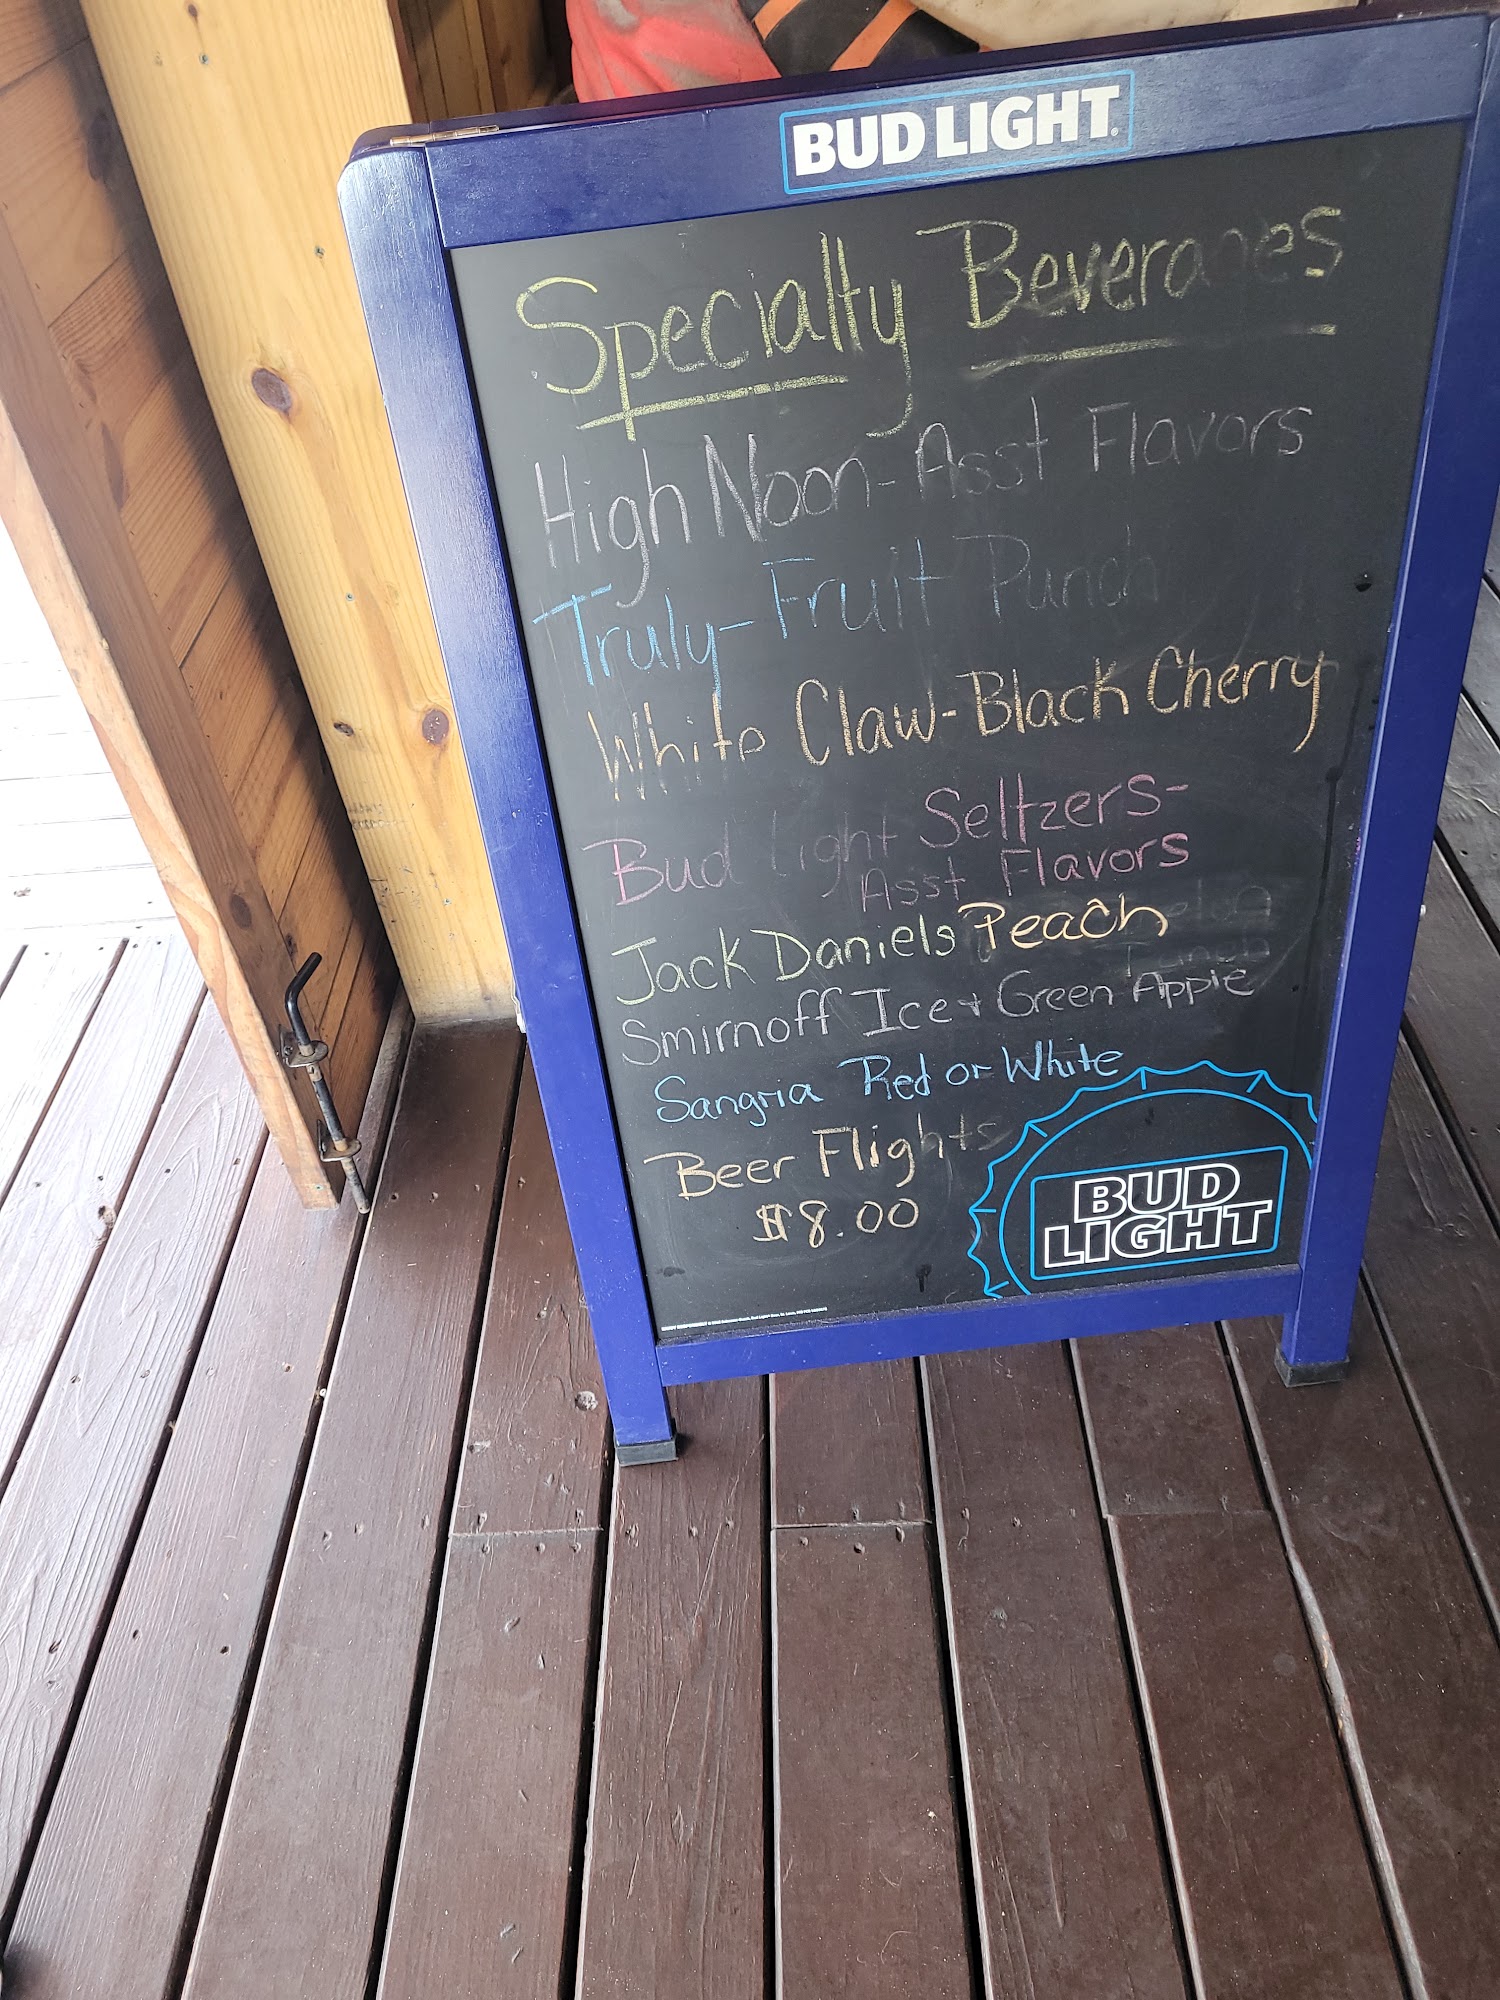 BUD LIGHT
Specialty Beverages
High Noon-Asst Flavors
Truly-Fruit Punch
White Claw-Black Cherry
Bud Light Seltzers-
Asst Flavors
Jack Daniels Peach
Smirnoff Ice + Green Apple
Sangria Red or White
Beer Flights
$8.00
BUD
LIGHT